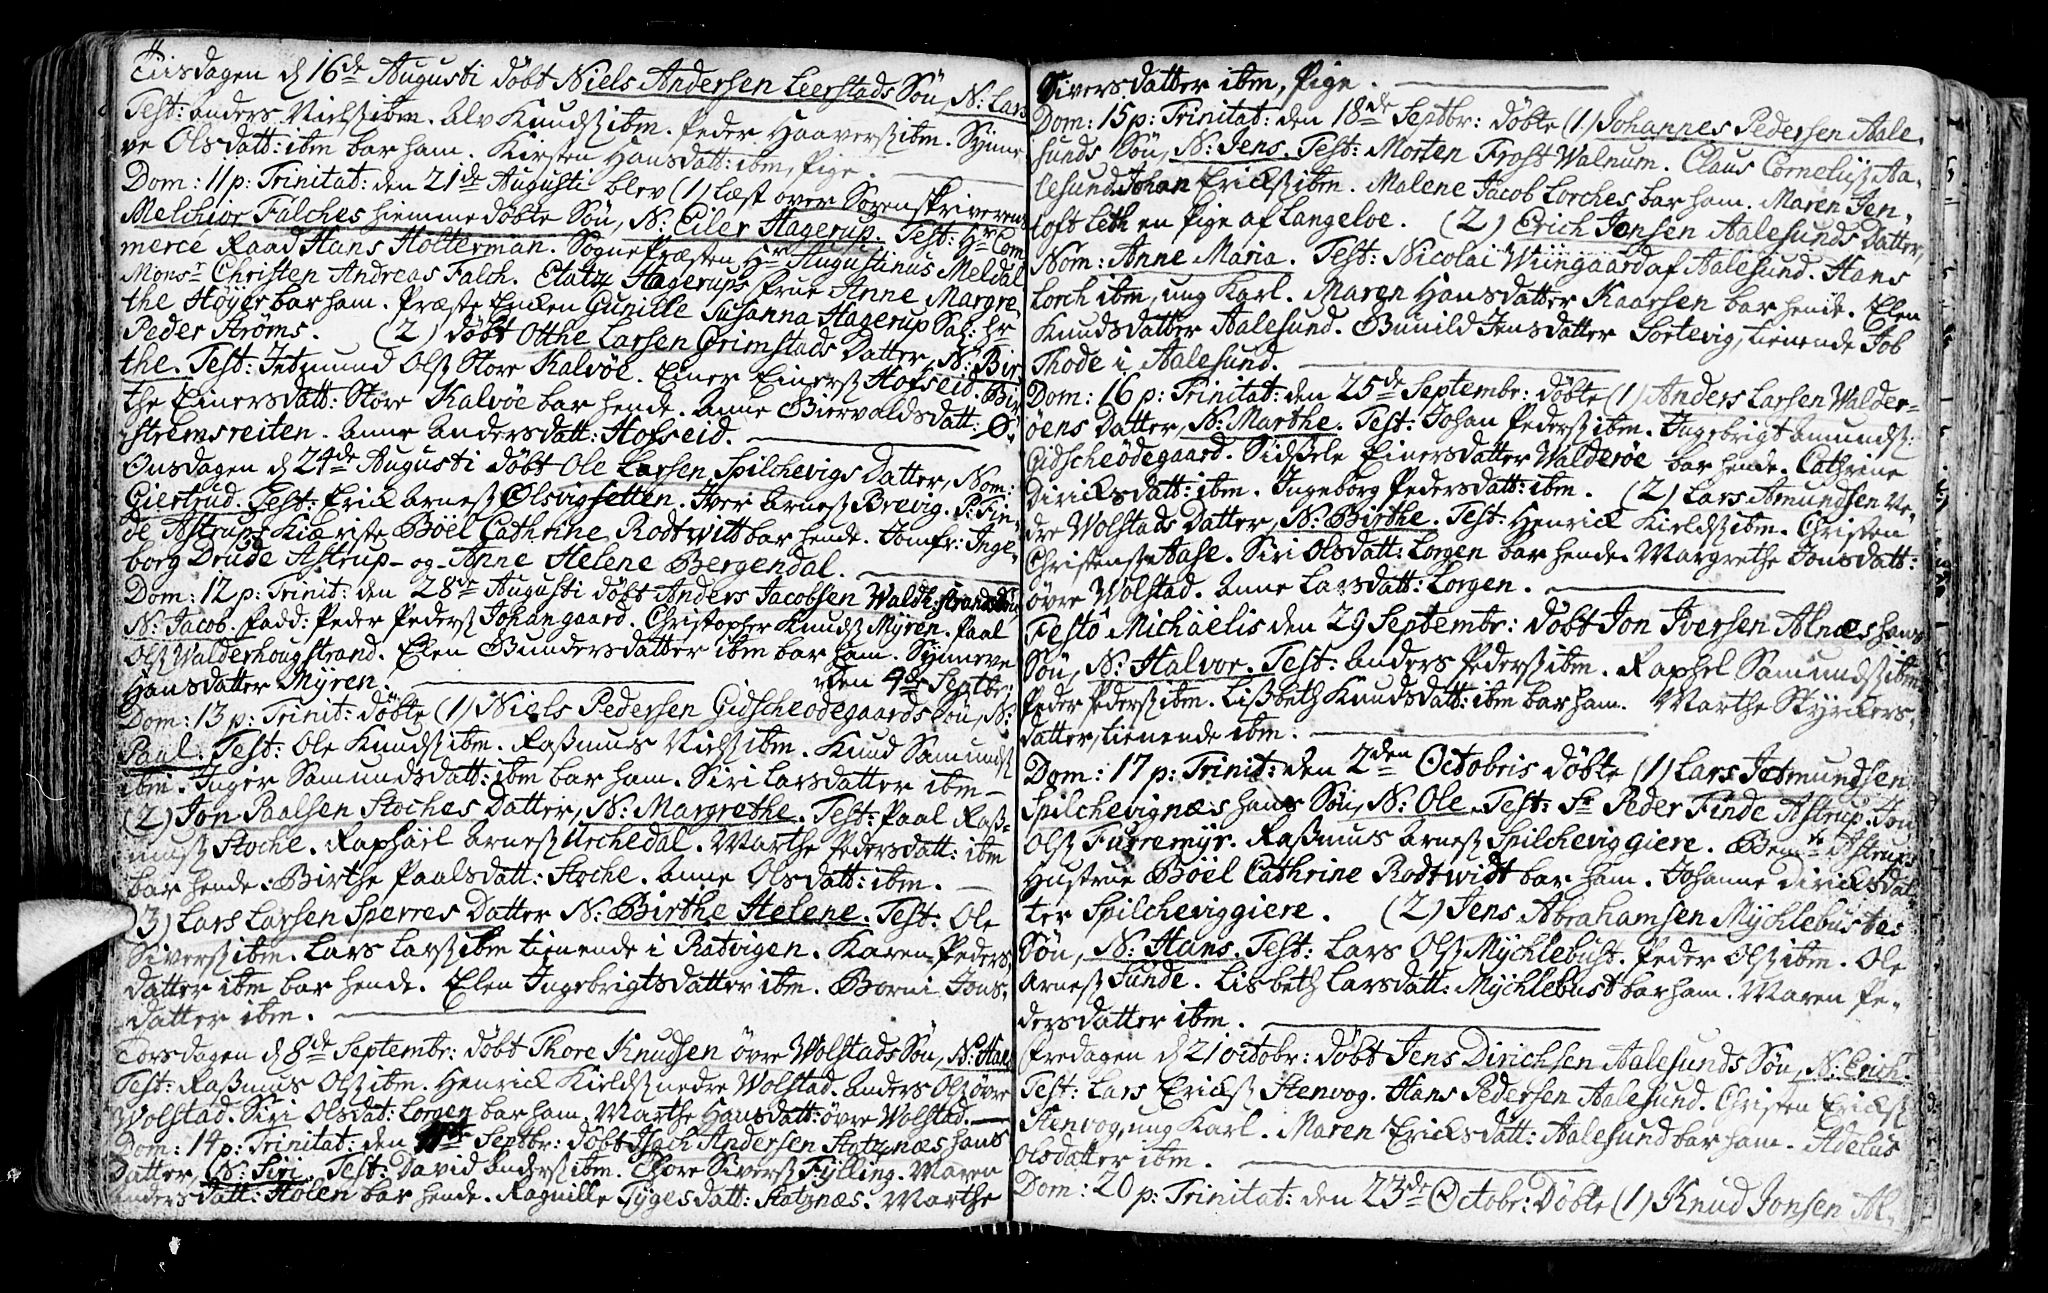 Tiisdagen d 16de Augusti döbt Niels Andersen Leerstads Sön, N: Lars
Test: Anders Nielsß ibm. Alv Knudsß ibm. Peder Haaversß ibm. Synne
ve Olsdatt: ibm bar ham. Kirsten Hansdatt: ibm, Pige.
Dom: 11 p: Trinitat: den 21de Augusti blev (1) Læst over Sorenskriveren
Melchior Falches hiemmedöbte Sön, N: Eiler Hagerup. Test: Hr Com
merce Raad Hans Holterman. SognePræsten Hr Augustinus Meldal
Monsr Christen Andreas Falch. Etatz Hagerups Frue Anne Margre
the Höyer bar ham. Præste Enken Gunille Susanna Hagerup Sal: Hr
Peder Ströms. (2) döbt Otthe Larsen Grimstads Datter, N: Bir
the. Test: Jetmund Olsß Store Kalvöe. Einer Einersß Hofseid. Bir
the Einersdatt: Store Kalvöe bar hende. Anne Biervaldsdatt: Ø
stremsreiten. Anne Andersdatt: Hofseid.
Onsdagen d 24de Augusti döbt Ole Larsen Spilchevigs Datter, Nom:
Giertrud. Test: Erick Arnesß Olsvigsetten. Iver Arnesß Brevig. P: Fin
de Astrups Kiæriste Böel Cathrine Rodtwitt bar hende. Jomfr: Inge
borg Drude Astrup og Anne Helene Bergendal.
Dom: 12 p: Trinit: den 28de Augusti döbt Anders Jacobsen Waldh:strands Sön,
N: Jacob. Fadd: Peder Pedersß Johangaard. Christopher Knudsß Myren. Paal
Olsß Walderhougstrand. Elen Gundersdatter ibm bar ham. Synneve
Hansdatter Myren. den 4de Septbr:
Dom: 13 p: Trinit: döbte (1) Niels Pedersen Gidscheodegaards Sön, N:
Paul. Test: Ole Knudsß ibm. Rasmus Nielsß ibm. Knud Samundsß
ibm. Inger Samundsdatt: ibm bar ham. Siri Larsdatter ibm
(2) Jon Paalsen Stoches Datter, N: Margrethe. Test: Paal Rasß
musß Stoche. Raphäel Arnesß Urchedal. Marthe Pedersdatt: ibm
bar hende. Birthe Paalsdatt: Stoche. Anne Olsdatt: ibm.
(3) Lars Larsen Sperres Datter N: Birthe Helene. Test: Ole
Siversß ibm. Lars Larsß ibm tienende i Ratvigen. Karen Peders
datter ibm bar hende. Elen Ingebrigtsdatter ibm. Borni Jons
datter ibm.
Torsdagen d 8de Septembr: döbt Thore Knudsen övre Wolstads Sön, N:
Test: Rasmus Olsß ibm. Henrick Kieldsß nedre Wolstad. Anders Olsß övre
Wolstad. Siri Olsdat: Lorgen bar ham. Marthe Hansdatt: övre Wolstad.
Dom: 14 p: Trinitat: den 11te Septbr: döbt Isach Andersen Slotznæs hans
Datter, N: Siri. Test: David Andersß ibm. Thore Siversß Fylling. Maren
Andersdatt: Holen bar hende. Ragnille Tygesdatt: Slotznæs. Marthe
Siversdatter ibm, Pige.
Dom: 15 p: Trinitat: den 18de Septbr: döbte (1) Johannes Pedersen Aale
sunds Sön, N: Jens. Test: Morten Frost Walnum. Claus Cornelisß Aa
lesund. Johan Ericksß ibm. Malene Jacob Lorches bar ham. Maren Jen
toft Leth en Pige af Langeloe. (2) Erich Jensen Aalesunds Datter,
Nom: Anne Maria. Test: Nicolai Wiingaard af Aalesund. Hans
Lorch ibm, ung Karl. Maren Hansdatter Kaarsen bar hende. Elen
Knudsdatter Aalesund. Gunild Jensdatter Sortevig, tienende Job
Thode i Aalesund.
Dom: 16 p: Trinitat: den 25de Septembr: döbte (1) Anders Larsen Walder
öens Datter, N: Marthe. Test: Johan Pedersß ibm. Ingebrigt Amundsß:
Gidscheödegaard. Sidsele Einersdatter Walderöe bar hende. Cathrine
Diricksdatt: ibm. Ingeborg Pedersdatt: ibm. (2) Lars Amundsen Ne
dre Wolstads Datter, N: Birthe. Test: Henrick Kieldsß ibm. Christen
Christensß Aase. Siri Olsdatt: Lorgen bar hende. Margrethe Jonsdatt:
övre Wolstad. Anne Larsdatt: Lorgen.
Festo Michaelis den 29 Septembr: döbt Jon Iversen Alnæs hans
Sön, N: Halvor. Test: Anders Pedersß ibm. Raphel Samundsß ibm
Peder Pedersß ibm. Lisbeth Knudsdatt: ibm bar ham. Marthe Styrckers
datter, tienende ibm.
Dom: 17 p: Trinit: den 2den Octobris döbte (1) Lars Jetmundsen
Spilchevignæs hans Sön, N: Ole. Test: Sr Peder Finde Astrup. Jon
Olsß Furremyr. Rasmus Arnesß Spilcheviggiere. Bemte Astrups
Hustrue Böel Cathrine Rodtwidt bar ham. Johanne Diricksdat
ter Spilcheviggiere. (2) Jens Abrahamsen Mychlebustes
Sön, N: Hans. Test: Lars Olsß Mychlebust. Peder Olsß ibm. Ole
Arnesß Sunde. Lisbeth Larsdatt: Mychlebust bar ham. Maren Pe
dersdatter ibm.
Fredagen d 21 octobr: döbt Jens Dirichsen Aalesunds Sön, N: Erich.
Test: Lars Ericksß Stenvog. Hans Pedersen Aalesund. Christen Ericksß
Stenvog, ung Karl. Maren Ericksdatt: Aalesund bar ham. Adelus
Olsdatter ibm.
Dom: 20 p: Trinitat: den 23de Octobr: Döbte (1) Knud Jonsen Al